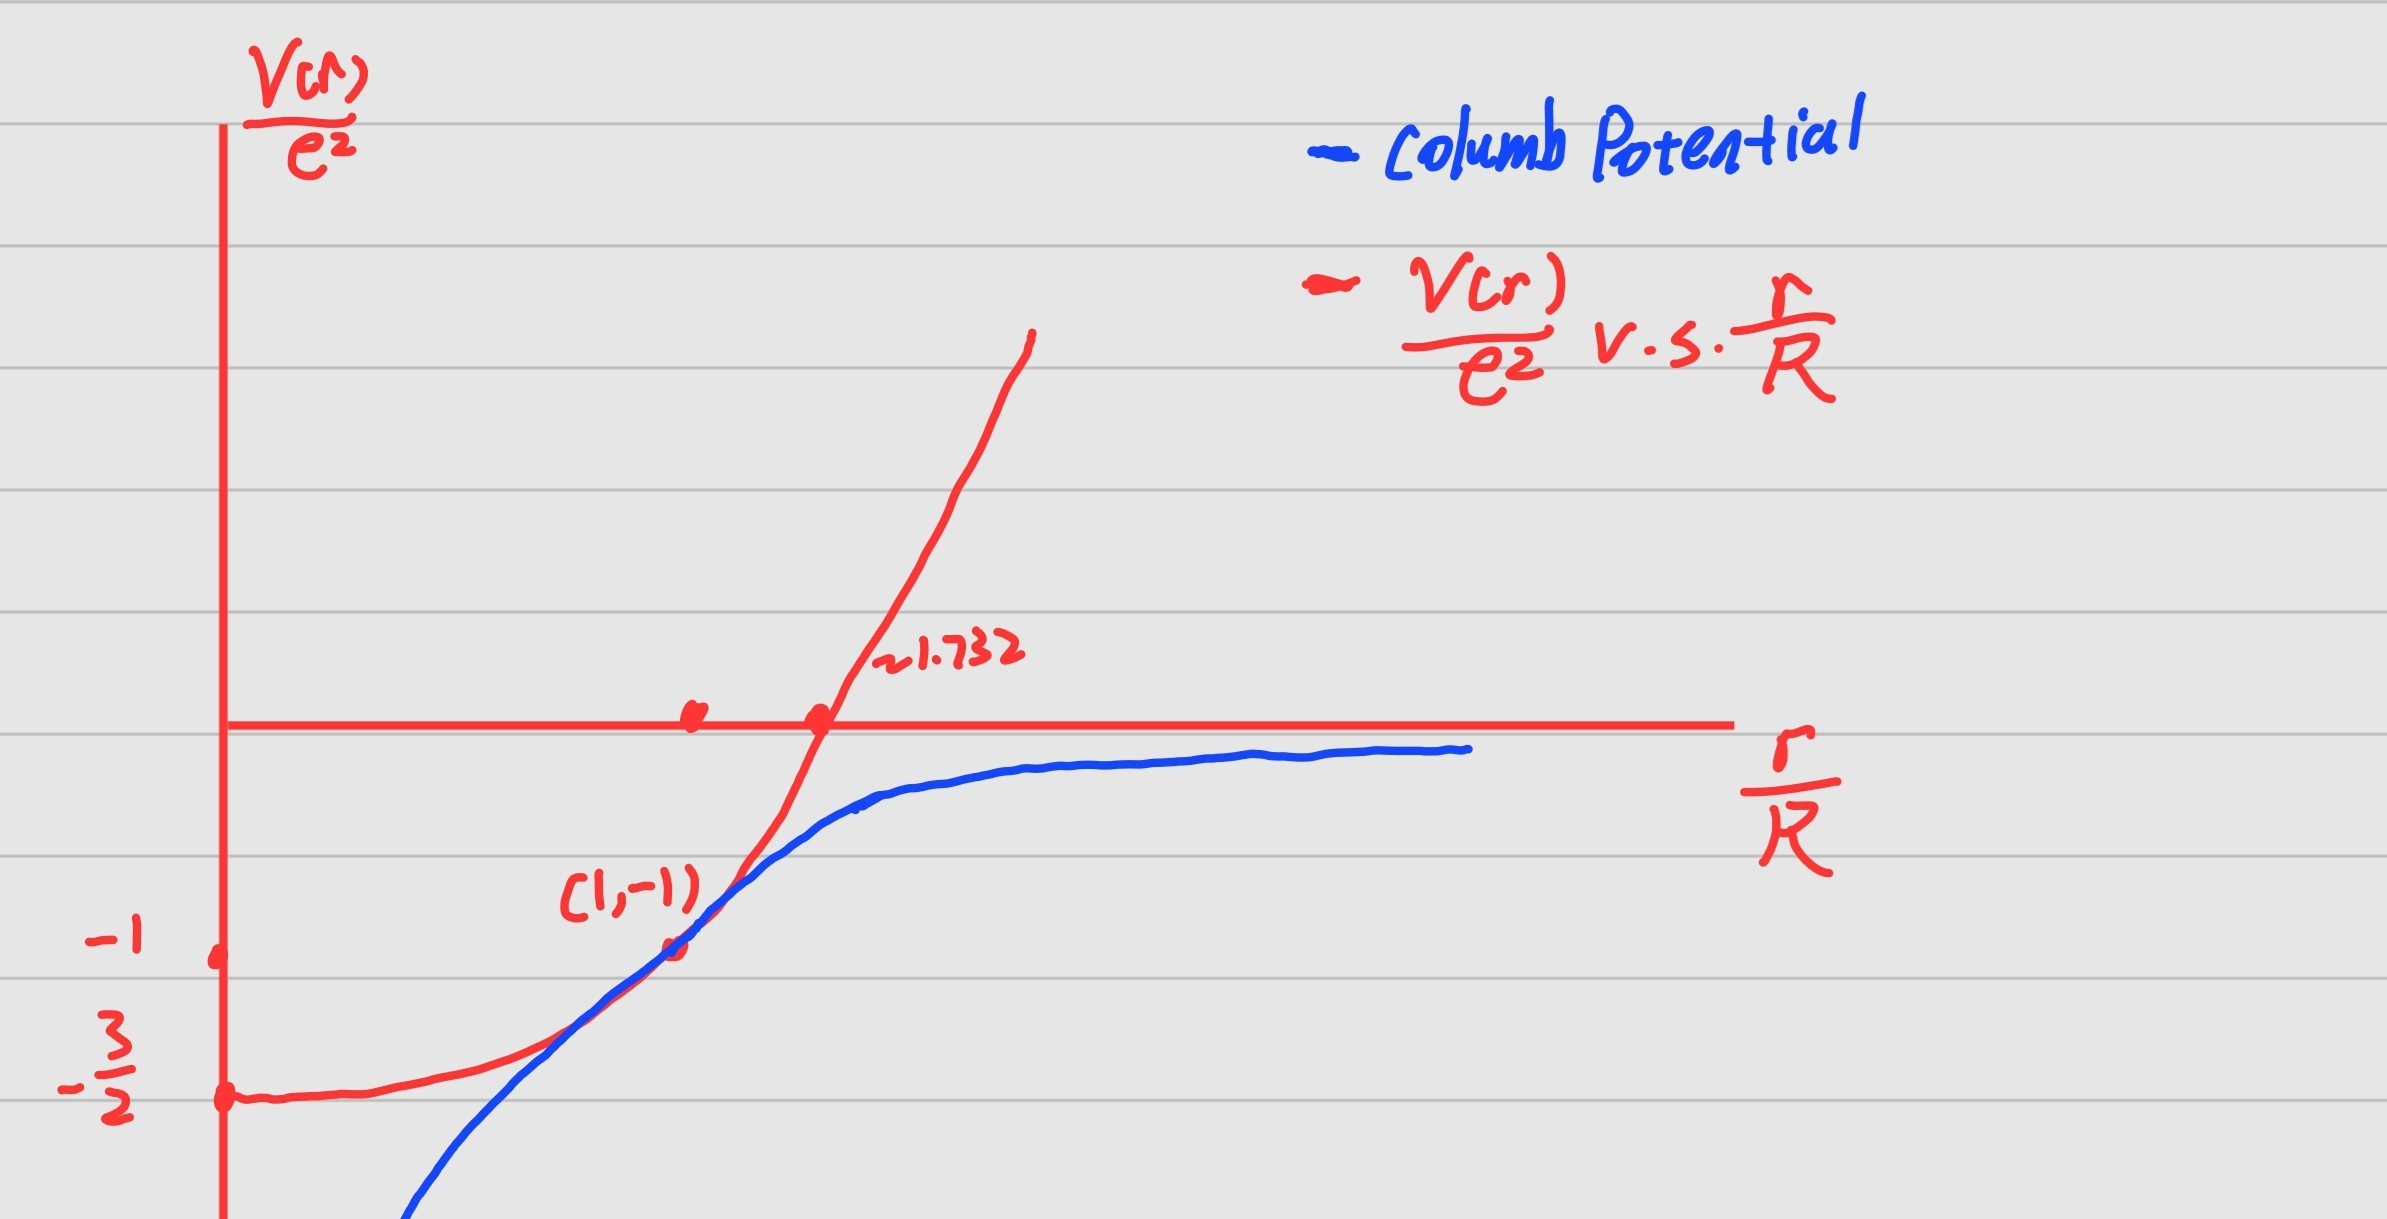 V(r)
e²
- Columb Potential
- V(r)
e² v.s. r
R
~1.732
r
R
(1,-1)
-1
- 3
2